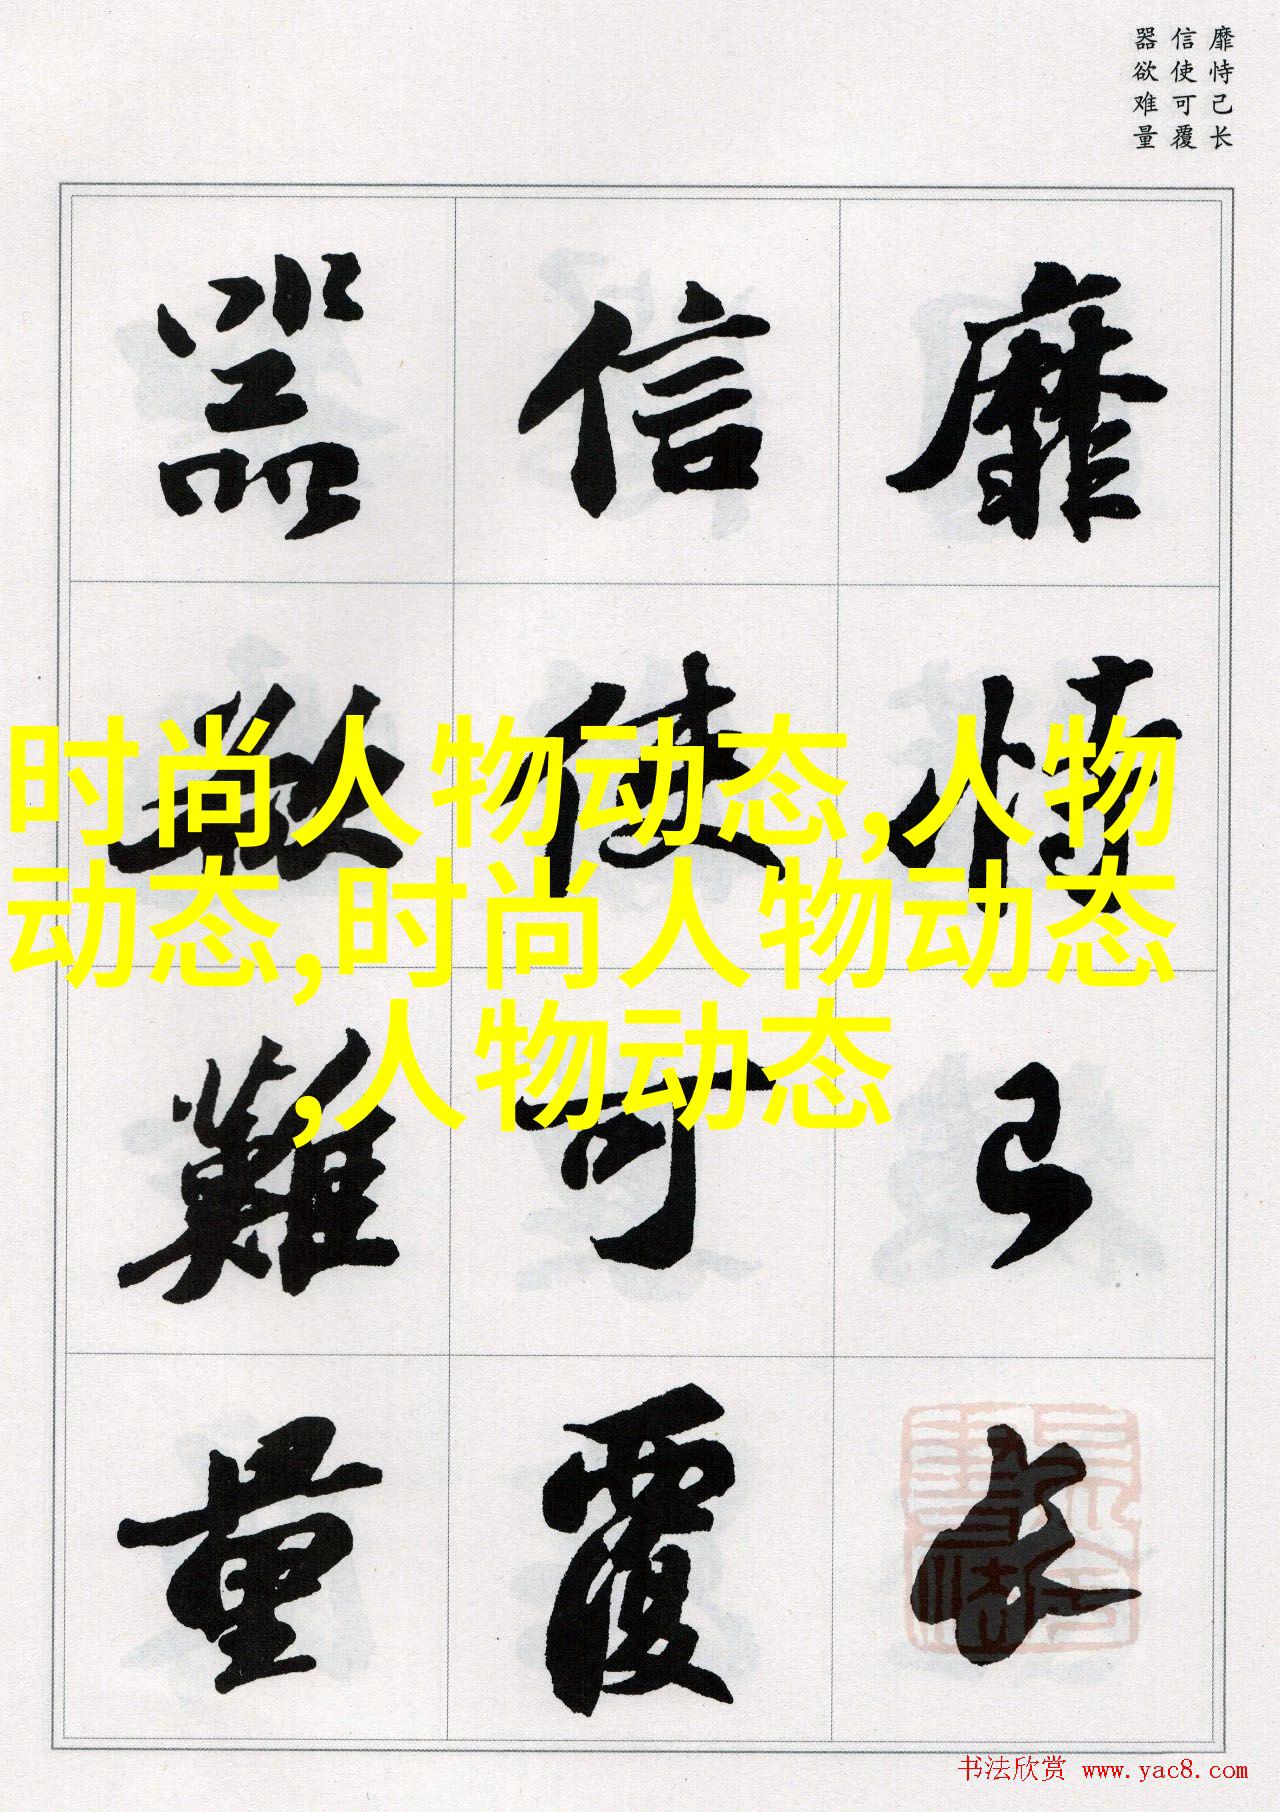 靡恃己长
信使可覆
器欲难量
靡恃己长
信使可覆
器欲難量
时尚人物动态,人物
动态,时尚人物动态
,人物动态
书法欣赏 www.yac8.com